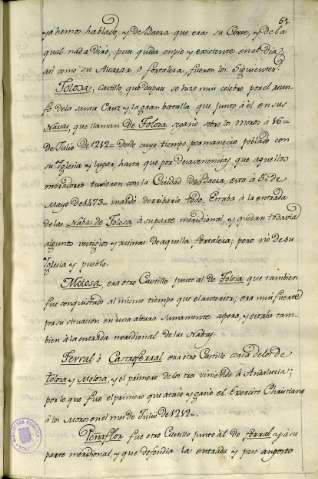 51
ya hemos hablado, y de Baeza que era su Corte, y de la
qual nada digo, pues queda en pie y existente en el dia,
asi como su Alcazar o fortaleza, fueron los siguientes.
Tolosa, castillo, que despues se hizo mui celebre por el triun-
fo de la santa Cruz y la gran batalla que junto à él en sus
Navas que llaman de Tolosa se gano sobre los moros à 16
de Julio de 1212. Desde cuyo tiempo permaneció poblado con
su Iglesia y lugar, hasta que por desavenencias que aquellos
moradores tuvieron con la Ciudad de Baeza, esta à 5 de
Mayo de 1473 mandó derribarlo todo. Estaba à la entrada
de las Navas de Tolosa à su parte meridional, y quedan todavia
algunos vestigios y ruinas de aquella fortaleza; pero no de su
Iglesia y pueblo.
Molosa, era otro Castillo junto al de Tolosa que tambien
fue conquistado al mismo tiempo que el anterior, era mui fuerte
por su situacion en una altura sumamente aspera, y estaba tam-
bien à la entrada meridional de las Navas.
Ferral ò Castroferral era otro Castillo cerca de los de
Tolosa y Molosa, y el primero de los tres viniendo à Andalucia;
por lo que fue el primero que atacó y ganó el Exercito Christiano
à los Moros en el mes de Julio de 1212.
Peñaflor fue otro Castillo junto al de Ferral y à su
parte meridional, y que defendia la entrada y paso angosto